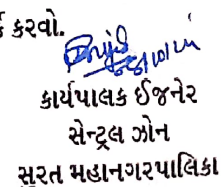 ર્ક કરવો.
કાર્યપાલક ઈજનેર
સેન્ટ્રલ ઝોન
સુરત મહાનગરપાલિકા